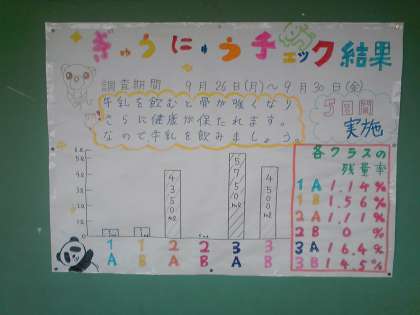 ぎゅうにゅうチェック結果
調査期間 9月26日(月)~9月30日(金)
牛乳を飲むと骨が強くなり
さらに健康が保たれます。
なので牛乳を飲みましょう。
5日間
実施
4350ml
5750ml
4500ml
1A
1B
2A
2B
3A
3B
各クラスの
残量率
1A 1.14%
1B 1.56%
2A 1.11%
2B 0%
3A 16.4%
3B 14.5%